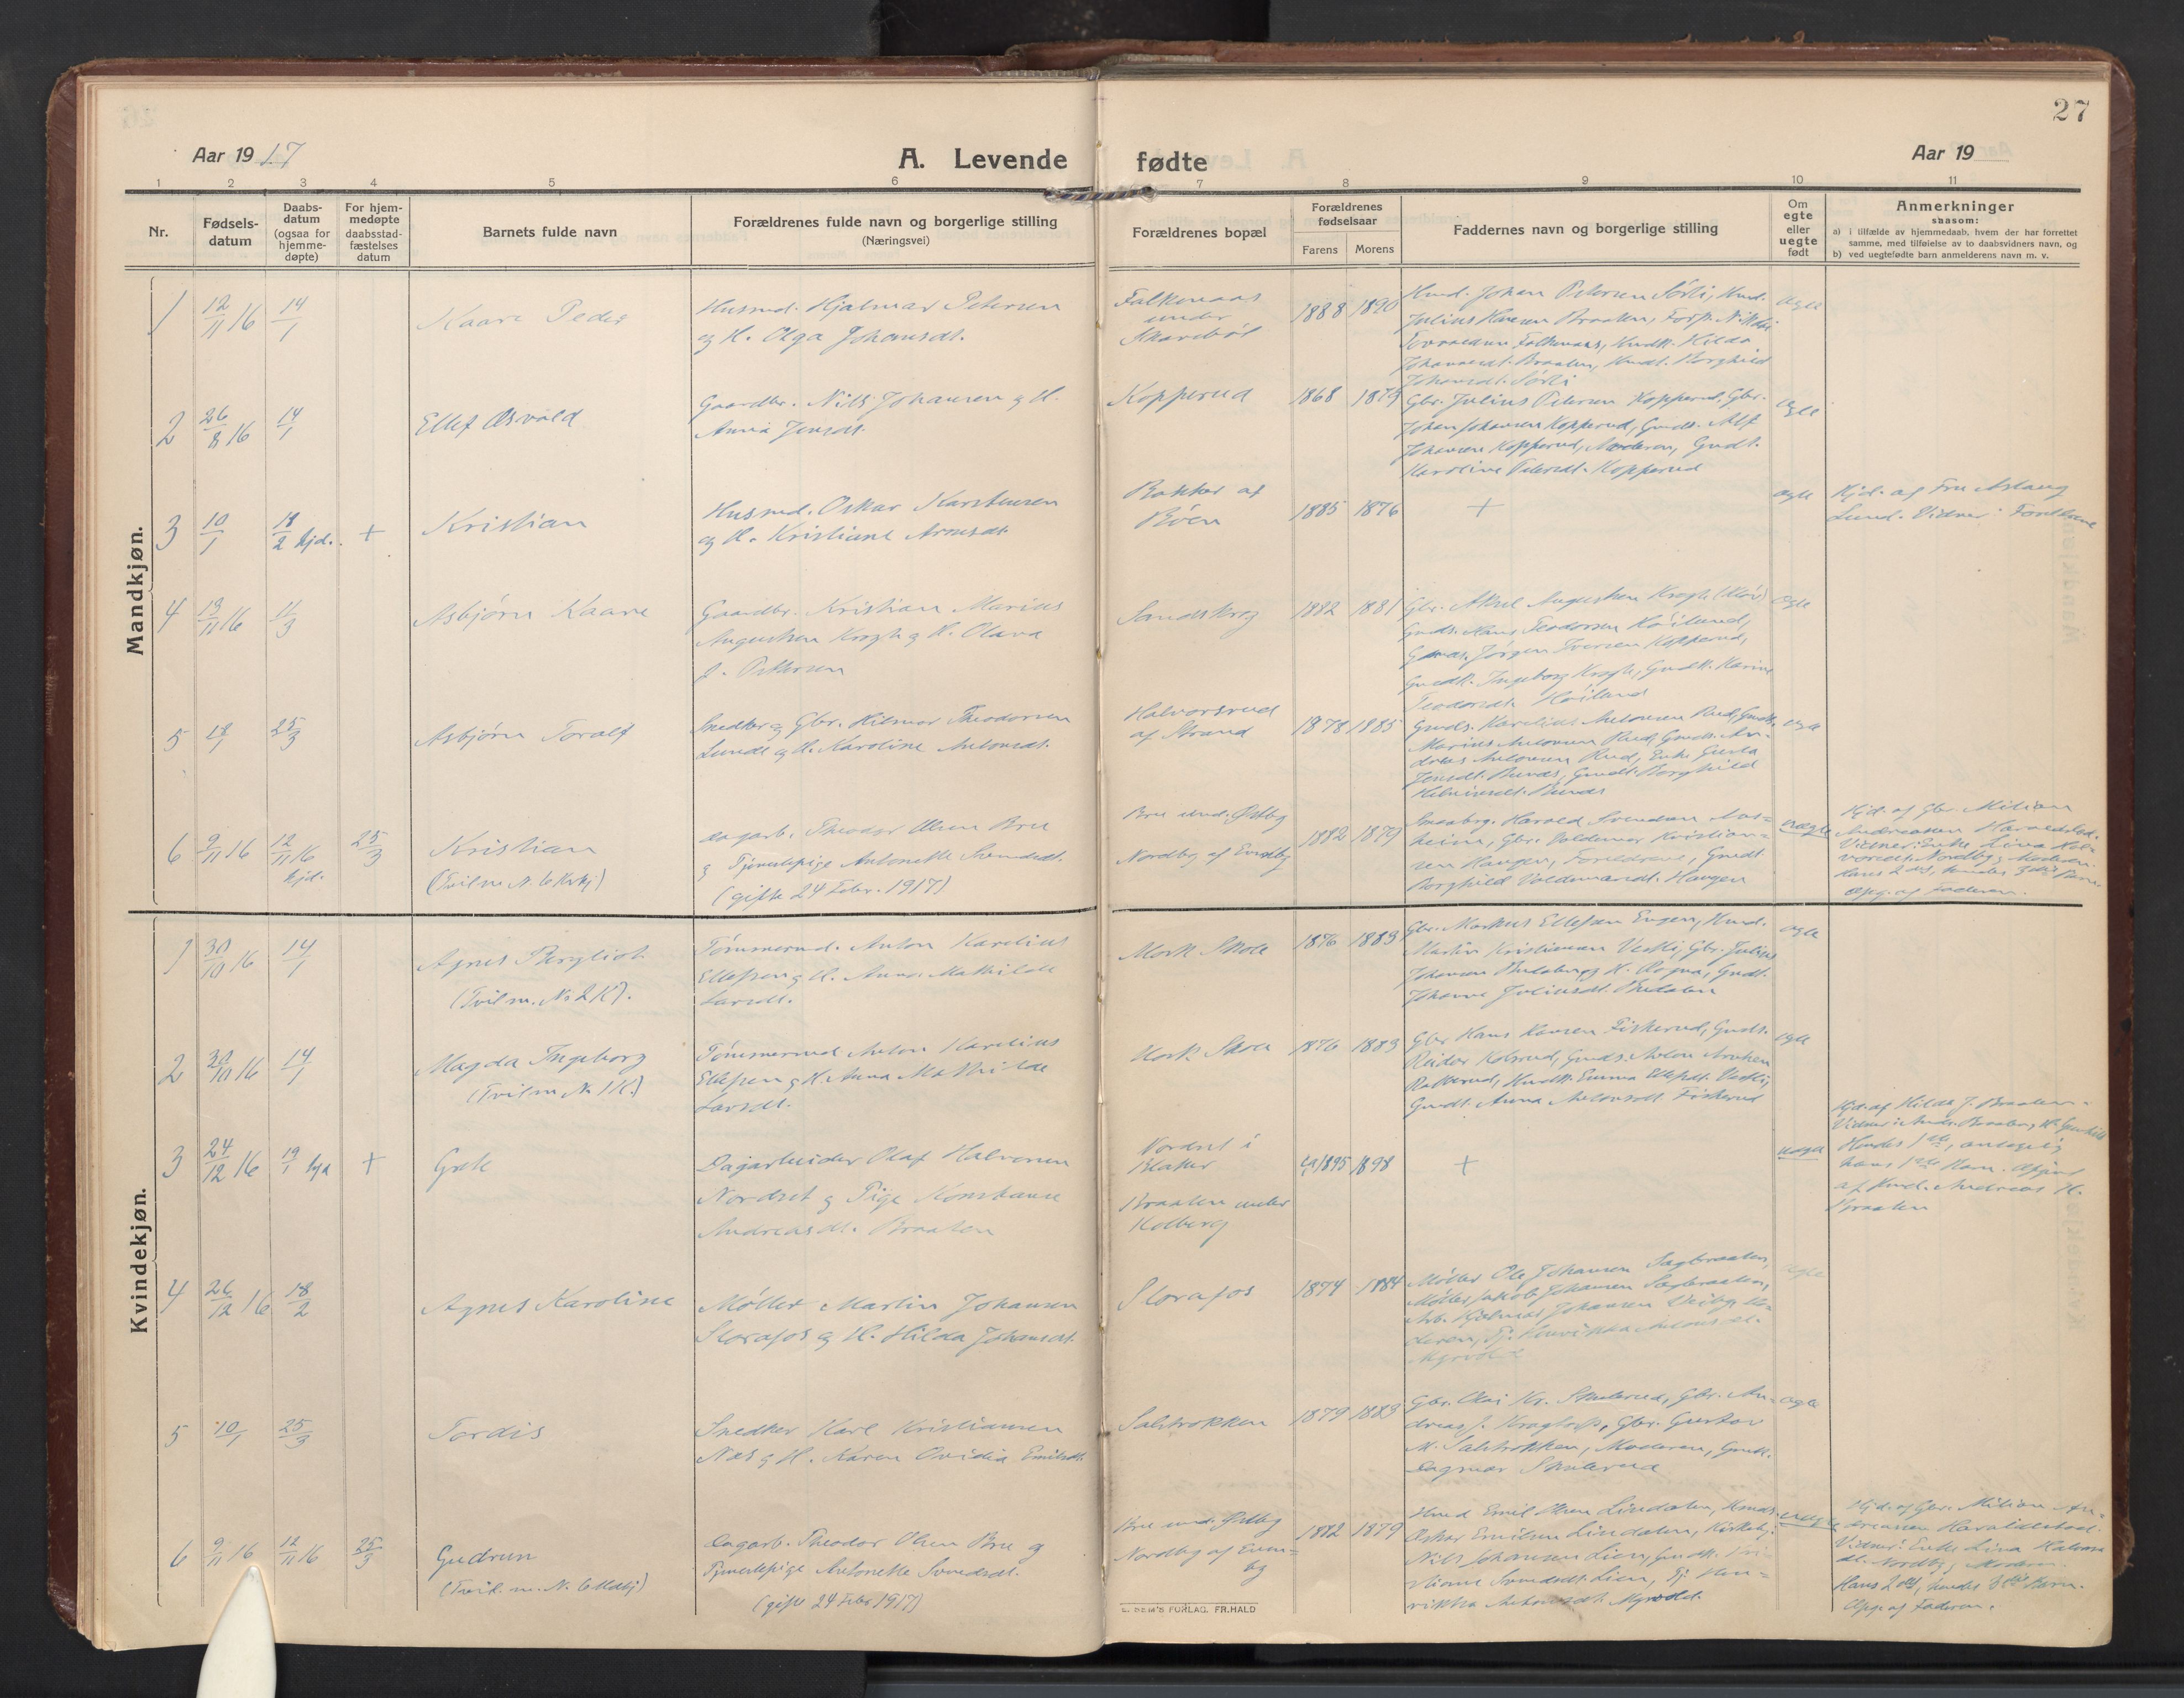 27
Aar 19 17
A. Levende fødte
Aar 19
1 2 3 4 5 6 7 8 9 10 11
Nr.
Fødsels-
datum
Daabs-
datum
(ogsaa for
hjemme-
døpte)
For hjem-
medøpte
daabsstad-
fæstelses
datum
Barnets fulde navn
Forældrenes fulde navn og borgerlige stilling
(Næringsvei)
Forældrenes bopæl
Forældrenes
fødselsaar
Farens Morens
Faddernes navn og borgerlige stilling
Om
egte
eller
uegte
født
Anmerkninger
saasom:
a) i tilfælde av hjemmedaab, hvem der har forrettet
samme, med tilføielse av to daabsvidners navn, og
b) ved uegtefødte barn anmelderens navn m. v.
Mandkjøn.
1 12/11 16 14/1 Kaare Peder
Husmd. Hjalmar Petersen
og H. Olga Johansdt.
Falkenaas
under
Skarebøl
1888 1890
Husmd. Johan Petersen Sørli, Husmd.
Julius Braaten,
Falkenaas, Hilda
Braaten, Borghild
Johansdt. Sørli
egte
2 26/8 16 14/1 Ellef Osvald
Gaardbr. Nils Johansen og H.
Anna Jensdt.
Kopperud
1868 1879
Gbr. Julius Petersen Kopperud, Gbr.
Johan Johansen Kopperud, Gmds. Alf
Johansen Kopperud, Moderen, Gmdt.
Karoline Petersdt. Kopperud
egte
3 10/1 18/2 hjd. + Kristian
Husmd. Oskar Karstensen
og H. Kristiane Arnesdt.
Bakker af
Böen
1885 1876
+
egte
Hjd. af Fru Aslaug
Lund. Vidner: Foreldrene
4 19/11 16 11/3 Asbjørn Kaare
Gaardbr. Kristian Marius
Augustsen Krogh og H. Olava
J. Pettersen
Sandskrog
1882 1881
Gbr. Aksel Augustsen Krogh
Gmds. Hans Teodorsen Høiland,
Gmds. Jørgen Iversen Kopperud,
Ingeborg Krogh, Karine
Teodorsdt. Høiland
egte
5 18/1 25/3 Asbjørn Toralf
Snedker og Gbr. Hilmar Theodorsen
Lunde og H. Karoline Antonsdt.
Halvorsrud
af Strand
1878 1885
Gmds. Karelius Antonsen Rud,
Marius Antonsen Rud, Gmds. An-
dreas Antonsen Rud, Enke
Jensdt. Gmdt. Borghild
egte
6 9/11 16 12/11 16 hjd. 25/3 Kristian
(Tvil m. N. 6 Kvkj)
Dagarb. Theodor Olsen Bru
og Tjenestepige Antonette Svendsdt.
(gifte 24 Febr. 1917)
Bru und. Østby
Nordby af
1882 1879
Harald Svendsen
heim, Gbr. Valdemar Kristian-
sen Haugen, Foreldrene, Gmdt.
Borghild Valdemarsdt. Haugen
uegte
Hjd. af Gbr. Milian
Andreassen Haraldstad.
Vidner: Enke Lina Hal-
vorsdt. Nordby, Moderen.
Hans 2det, hendes 3die Barn.
Opg. af Faderen.
Kvindekjøn.
1 30/10 16 14/1 Agnes Bergliot
(Tvil m. No 2 K).
Tømmermd. Anton Karelius
Ellefsen og H. Anna Mathilde
Larsdt.
Mork Skole
1876 1883
Gbr. Markus Ellefsen Engen, Husmd.
Martin Kristiansen Vestli, Gbr. Julius
Johansen og H. Ragna, Gmdt.
Johanne Juliusdt.
egte
2 30/10 16 14/1 Magda Ingeborg
(Tvil m. N. 1 K.)
Tømmermd. Anton Karelius
Ellefsen og H. Anna Mathilde
Larsdt.
Mork Skole
1876 1883
Gbr. Hans Hansen Fiskerud, Gmds.
Reidar Kolsrud, Gmds. Anton
Emma Ellefsdt. Vestli,
Gmdt. Anna Antonsdt. Fiskerud
egte
3 24/12 16 19/1 hjd + Grete
Dagarbeider Olaf Halvorsen
Nordset og Pige Konstanse
Andreasdt. Braaten
Nordset i
Blaker
Braaten under
Kolberg
1895 1898
+
uegte
Hjd. af Hilda J. Braaten.
Vidner: Andr. Braaten, H. Gunhild
Hendes 1ste, antagelig
hans 1ste Barn. Opgivet
af Husmd. Andreas H.
Braaten
4 26/12 16 18/2 Agnes Karoline
Møller Martin Johansen
Storafos og H. Hilda Johansdt.
Storafos
1874 1884
Møller Ole Johansen Sagbraaten,
Møller Jakob Johansen Sagbraaten,
Arb. Hjalmar Johansen Mo-
deren, Tj. Henrikka Antons-
Myrvold
egte
5 10/1 25/3 Tordis
Snedker Karl Kristiansen
Næs og H. Karen Ovidia Emilsdt.
Salstrokken
1879 1883
Gbr. Olai Kr. Skulerud, Gbr. An-
dreas J. Krogtorp, Gbr. Gustav
M. Salstrokken, Moderen, Gmdt.
Dagmar Skulerud
egte
6 9/11 16 12/11 16 25/3 Gudrun
(Tvil. m. N. 6 Mdkj)
Dagarb. Theodor Olsen Bru og
Tjenestepige Antonette Svendsdt.
(gifte 24 Febr. 1917)
Bru und. Østby
Nordby af
1882 1879
Husmd Emil Olsen Lindalen, Husmds.
Oskar Emilsen Lindalen, Kirkebg.
Nils Johansen Lien, Gmdk. Kri-
stiane Svendsdt. Lien, Tj. Hen-
rikka Antonsdt. Myrvold.
uegte
Hjd. af Gbr. Milian An-
dreassen Haraldstad.
Vidner: Enke Lina Halvors-
dt. Nordby, Moderen.
Hans 2det, hendes 3die Barn.
Opg. af Faderen.
E. SEM'S FORLAG. FR.HALD